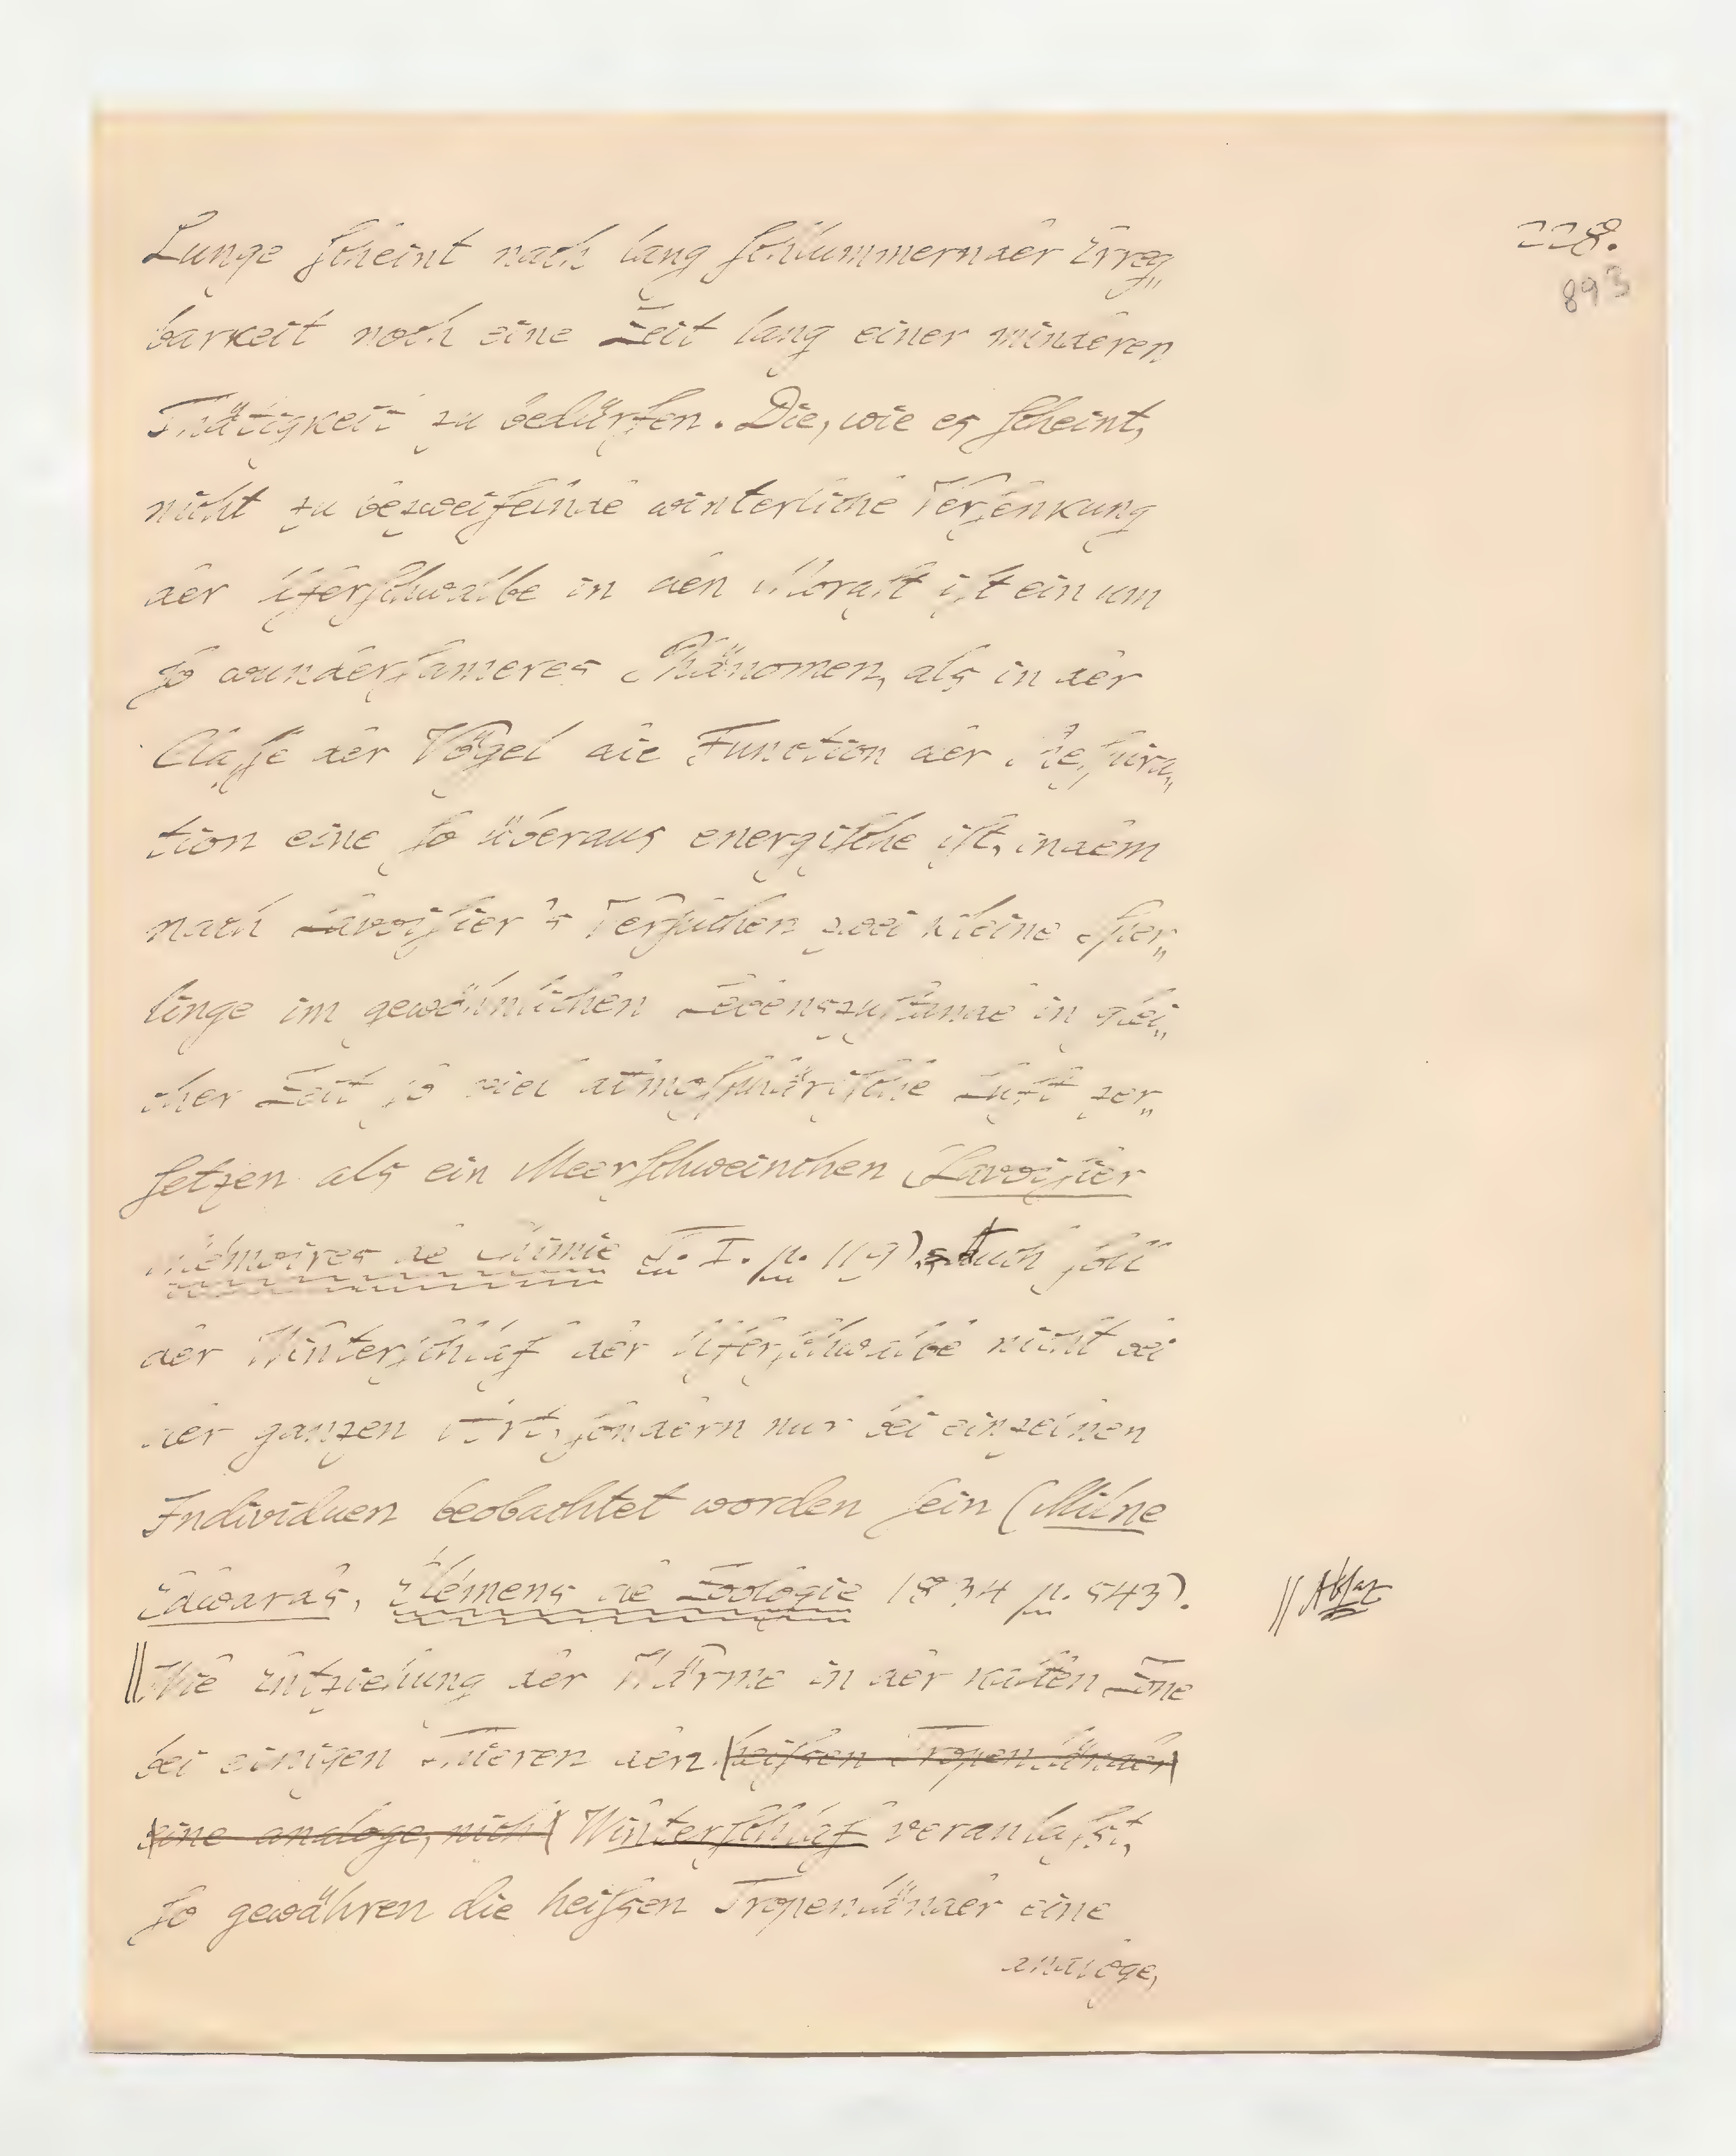 228.
893
Lunge scheint nach lang schlummernder Erreg„
barkeit noch eine Zeit lang einer minderen
Thätigkeit zu bedürfen. Die, wie es scheint,
nicht zu bezweifelnde winterliche Versenkung
der Uferschwalbe in den Morast ist ein um
so wundersameres Phänomen, als in der
Classe der Vögel die Function der Respira„
tion eine so überaus energische ist, indem
nach Lavoisier's Versuchen zwei kleine Sper„
linge im gewöhnlichen Lebenszustande in glei„
cher Zeit so viel atmosphärische Luft zer„
setzen als ein Meerschweinchen (Lavoisier
Mémoires de Chimie T. I. p. 119). Auch soll
der Winterschlaf der Uferschwalbe nicht bei
der ganzen Art, sondern nur bei einzelnen
Individuen beobachtet worden sein (Milne
Edwards, Élémens de Zoologie 1834 p. 543).
// Absaz
|| Wie Entziehung der Wärme in der kalten Zone
bei einigen Thieren den heißen Tropenländer
eine analoge, nich Winterschlaf veranlaßt,
so gewähren die heißen Tropenländer eine
analoge,